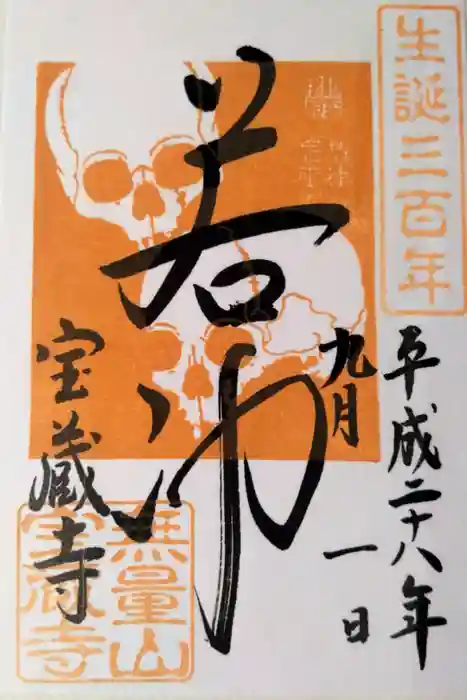 生誕三百年
平成二十八年
九月
一日
若冲
宝蔵寺
無量山
宝蔵寺